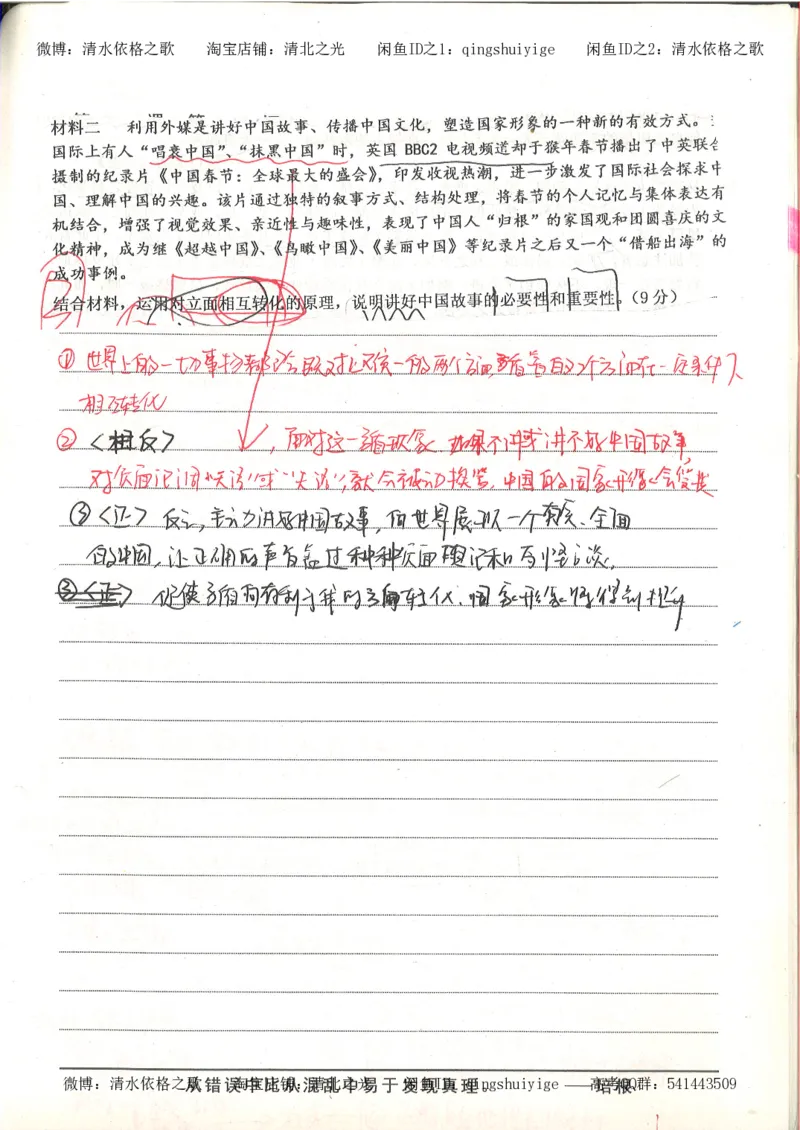 微博：清水依格之歌 淘宝店铺：清北之光 闲鱼ID之1：qingshuiyige 闲鱼ID之2：清水依格之歌
材料二 利用外媒是讲好中国故事、传播中国文化，塑造国家形象的一种新的有效方式。
国际上有人“唱衰中国”、“抹黑中国”时，英国 BBC2 电视频道却于猴年春节播出了中英联合
摄制的纪录片《中国春节：全球最大的盛会》，印发收视热潮，进一步激发了国际社会探求中
国、理解中国的兴趣。该片通过独特的叙事方式、结构处理，将春节的个人记忆与集体表达有
机结合，增强了视觉效果、亲近性与趣味性，表现了中国人“归根”的家国观和团圆喜庆的文
化精神，成为继《超越中国》、《鸟瞰中国》、《美丽中国》等纪录片之后又一个“借船出海”的
成功事例。
结合材料，运用对立面相互转化的原理，说明讲好中国故事的必要性和重要性。（9分）
① 世界上的一切事物都 对立统一的两个方面，矛盾着的2个方面在一定条件下
相互转化
② <相反>，面对这一矛盾现象，如果不讲或讲不好中国故事
对负面 “失语”或“失语”，就会被动挨骂，中国的国家形象会受损
③ <正> 反之，主动讲好中国故事，向世界展现一个真实、全面
的中国，让正确的声音盖过种种负面 和奇谈怪论，
③<正> 促使矛盾向有利于我的方向转化，国家形象将得到提升
微博：清水依格之歌 淘宝店铺：清北之光 闲鱼ID：qingshuiyige 高考QQ群：541443509
从错误中比从混乱中易于发现真理。——培根